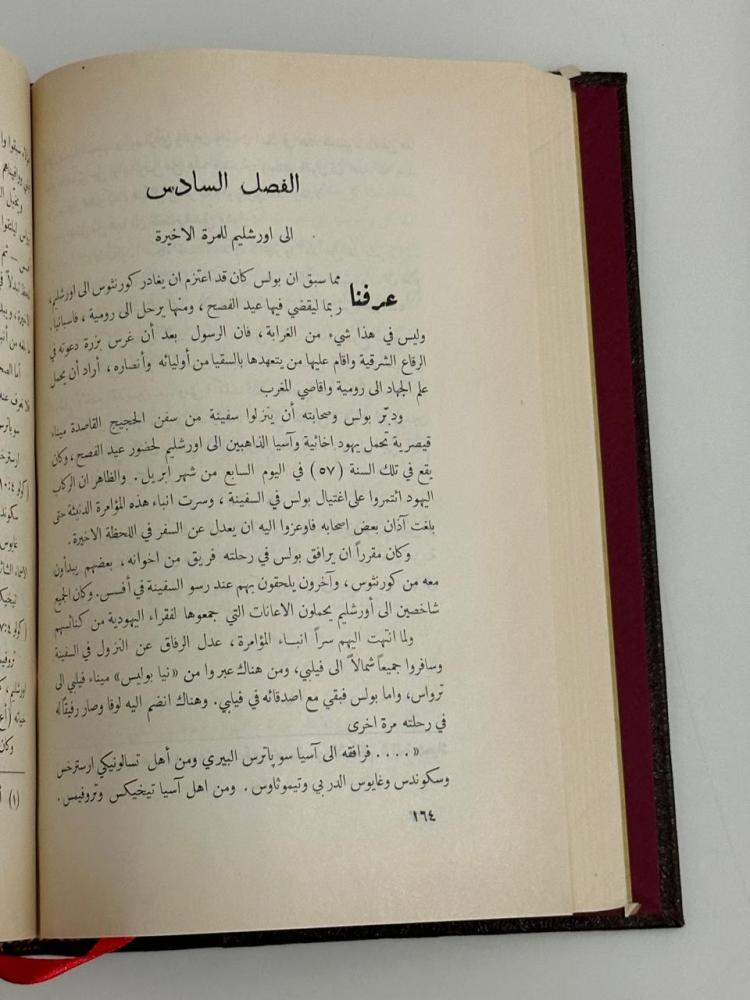 الفصل السادس
الى اورشليم للمرة الاخيرة
عرفنا مما سبق ان بولس كان قد اعتزم ان يغادر كورنثوس الى اورشليم،
ربما ليقضي فيها عيد الفصح، ومنها يرحل الى رومية، فاسبانيا.
وليس في هذا شيء من الغرابة، فان الرسول بعد أن غرس بزرة دعوته في
الرقاع الشرقية واقام عليها من يتعهدها بالسقيا من أوليائه وأنصاره، أراد أن يحمل
علم الجهاد الى رومية واقاصي المغرب
ودبّر بولس وصحابته أن ينزلوا سفينة من سفن الحجيج القاصدة ميناء
قيصرية تحمل يهود اخائية وآسيا الذاهبين الى اورشليم لحضور عيد الفصح، وكان
يقع في تلك السنة (٥٧) في اليوم السابع من شهر ابريل. والظاهر ان الركاب
اليهود ائتمروا على اغتيال بولس في السفينة، وسرت انباء هذه المؤامرة الدنيئة حتى
بلغت آذان بعض اصحابه فاوعزوا اليه ان يعدل عن السفر في اللحظة الاخيرة.
وكان مقرراً ان يرافق بولس في رحلته فريق من اخوانه، بعضهم يبدأون
معه من كورنثوس، وآخرون يلحقون بهم عند رسو السفينة في أفسس. وكان الجميع
شاخصين الى أورشليم يحملون الاعانات التي جمعوها لفقراء اليهودية من كنائسهم
ولما انتهت اليهم سراً انباء المؤامرة، عدل الرفاق عن النزول في السفينة
وسافروا جميعاً شمالاً الى فيلبي، ومن هناك عبروا من «نيا بوليس» ميناء فيلبي الى
ترواس، واما بولس فبقي مع اصدقائه في فيلبي. وهناك انضم اليه لوقا وصار رفيقاً له
في رحلته مرة اخرى
«.... فرافقه الى آسيا سوباترس البيري ومن أهل تسالونيكي ارسترخس
وسكوندس وغايوس الدربي وتيموثاوس. ومن اهل آسيا تيخيكس وتروفيمس.
١٦٤